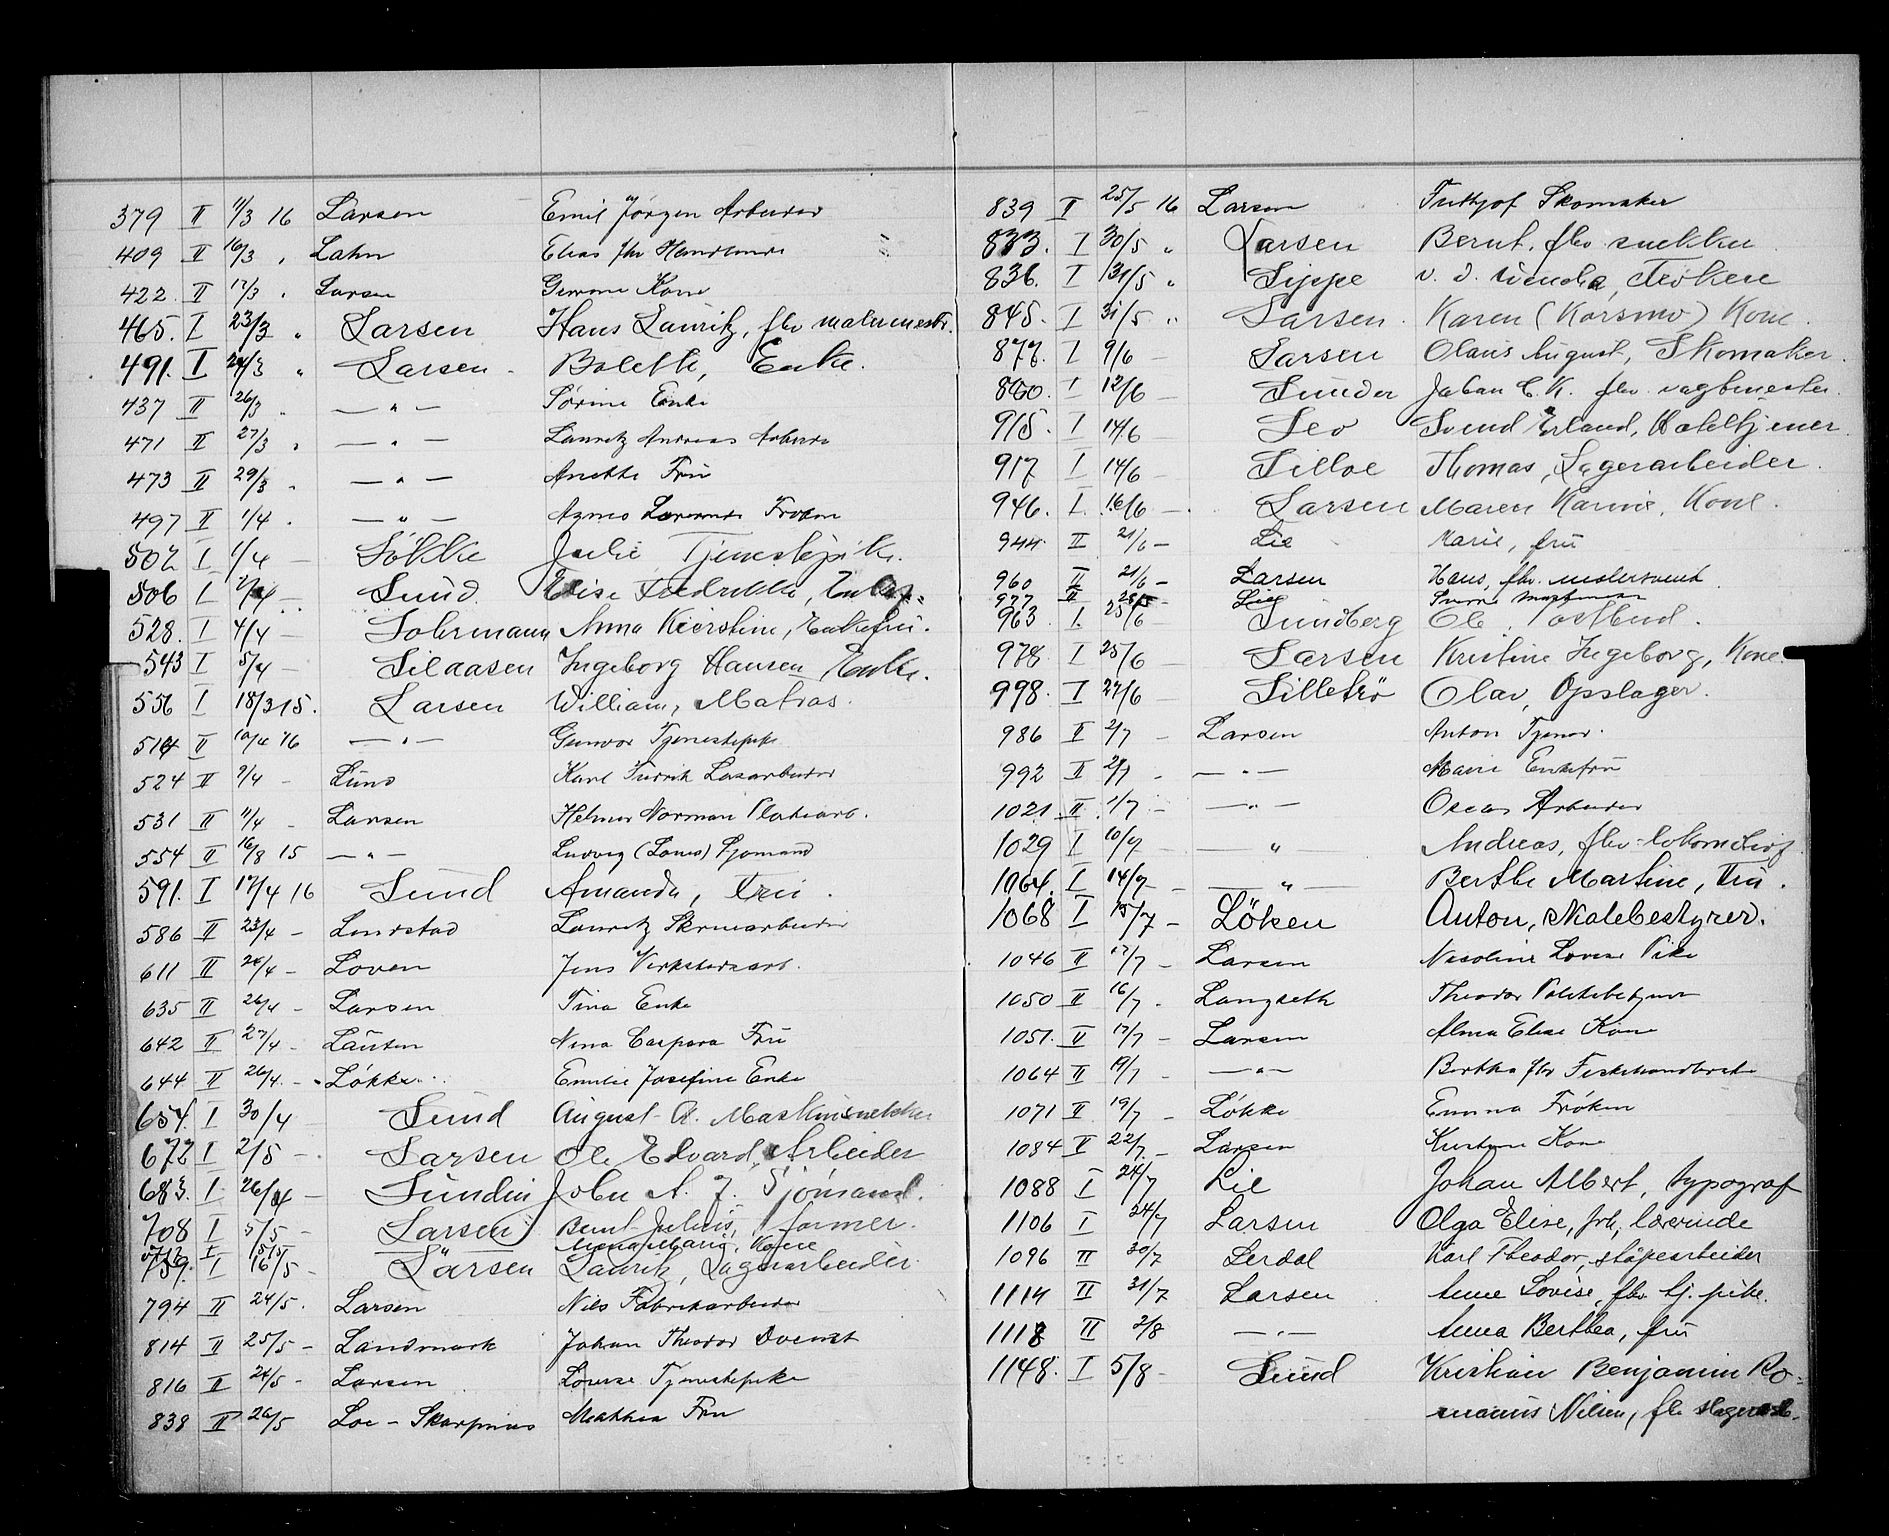 379 II 11/3 16 Larsen Emil Jørgen Arbeider
409 II 16/3 " Lahn Elias fhv Handlende
422 II 17/3 " Larsen Kone
465. I 23/3 " Larsen Hans Lauritz, fhv malermestr.
491. I 24/3 " Larsen Bolette, Enke.
437 II 26/3 " — " — Sørine Enke
471 II 27/3 " — " — Lauritz Andreas Arbeider
473 II 29/3 " — " — Anette Fru
497 II 1/4 " — " — Agnes Frøken
502 I 1/4 — Løkke Julie Tjenestepike.
506 I 2/4 — Lund Elise Fredrikke,
528. I 4/4 — Lohrmann Anna Kierstine, Enkefru.
543 I 5/4 — Lilaasen Ingeborg Hansen, Enke.
556 I 18/3 15. Larsen William, Matros.
514 II 10/4 16 — " — Gunvor Tjenestepike
524 II 9/4 - Lund Karl Fredrik Losarbeider
531 II 11/4 - Larsen Helmer Norman Platearb.
554 II 16/8 15 — " — Ludvig (Louis) Sjømand
591. I 17/4 16 Lund Amanda, Fru.
586 II 23/4 - Lundstad Lauritz Skruearbeider
611 II 24/4 - Loven Jens Verkstedsarb.
635 II 26/4 - Larsen Tina Enke
642 II 27/4 - Lauten Nina Caspara Fru
644 II 26/4 - Løkke Emilie Josefine Enke
654. I 30/4 Lund August A. Maskinsnekker
672 I 2/5 - Larsen Ole Edvard, Arbeider
683. I 26/4 - Lundin John A. J. Sjømand.
708 I 5/5 - Larsen Bernt Julius, former.
I 15/5 Anna Marie, Kone
759. I 16/5 - Larsen Laurits, Lagerarbeider
794 II 24/5. Larsen Nils Fabrikarbeider
814 II 25/5 - Landmark Johan Theodor Dvenst
816 II 24/5 - Larsen Lovise Tjenestepike
838 II 26/5 Loe - Skarpnes Mathea Fru
839 II 25/5 16 Larsen Frithjof Skomaker
833. I 30/5 " Larsen Bernt, fhv snekker
836. I 31/5 " Lippe v. d. Wenche, Frøken
845. I 31/5 " Larsen. Karen (Korsmo) Kone.
877. I 9/6 — Larsen Olaus August, Skomaker.
860. I 12/6 — Lunder Johan C. K. fhv. vagtmester.
915. I 14/6 — Leo Svend Erland, Hoteltjener.
917 I 14/6 — Lilloe Thomas, Lagerarbeider.
946. I. 16/6 — Larsen Maren Karine, Kone.
944 II 21/6 — Lie Marie, fru
960 II 21/6 — Larsen Hans, fhv. malersvend
977 II Lie Sverre
963 I. 25/6 — Lundberg Ole, Postbud.
978 I 25/6 Larsen Kristine Ingeborg, Kone.
998. I 27/6 Lilletrø Olav, Opslager.
986 II 2/7 - Larsen Anton Tjener.
992 II 2/7 - — " — Marie Enkefru
1021 II 1/7 - — " — Oscar Arbeider
1029 I 10/7 — " — Andreas, fhv. lokomotivf
1064. I 14/7 - — " — Berthe Martine, Fru.
1068 I 15/7 - Løken Anton, Malebestyrer.
1046 II 17/7 - Larsen Nicoline Lovise Pike
1050 II 16/7 - Langseth Theodor
1051. II 17/7 - Larsen Alma Elise Kone
1064 II 19/7 - — " — Berthea fhv Fiskehandlerske
1071 II 19/7 - Løkke Emma Frøken
1084 II 22/7 - Larsen Kirstine Kone
1088 I 24/7 Lie Johan Albert, typograf
1106 I 24/7 Larsen Olga Elise, frk, lærerinde
1096 II 30/7 Lerdal Karl Theodor, støpearbeider
1114 II 31/7 Larsen Anne Lovise, fhv. tj. pike.
1118 II 2/8 — " — Anna Berthea, fru
1148. I 5/8 - Lund Kristian Benjamin Ro-
manus Nilsen, fhv